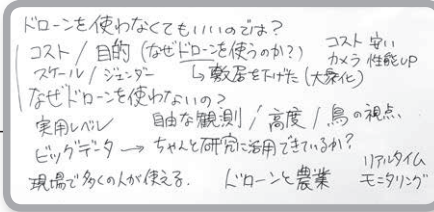 ドローンを使わなくてもいいのでは?
コスト / 目的 (なぜドローンを使うのか?)
コスト 安い
カメラ 性能UP
スケール / ジェンダー
↳ 敷居を下げた (大衆化)
なぜドローンを使わないの?
実用レベル 自由な観測 / 高度 / 鳥の視点
ビッグデータ → ちゃんと研究に活用できているか?
現場で多くの人が使える. ドローンと農業
リアルタイム
モニタリング